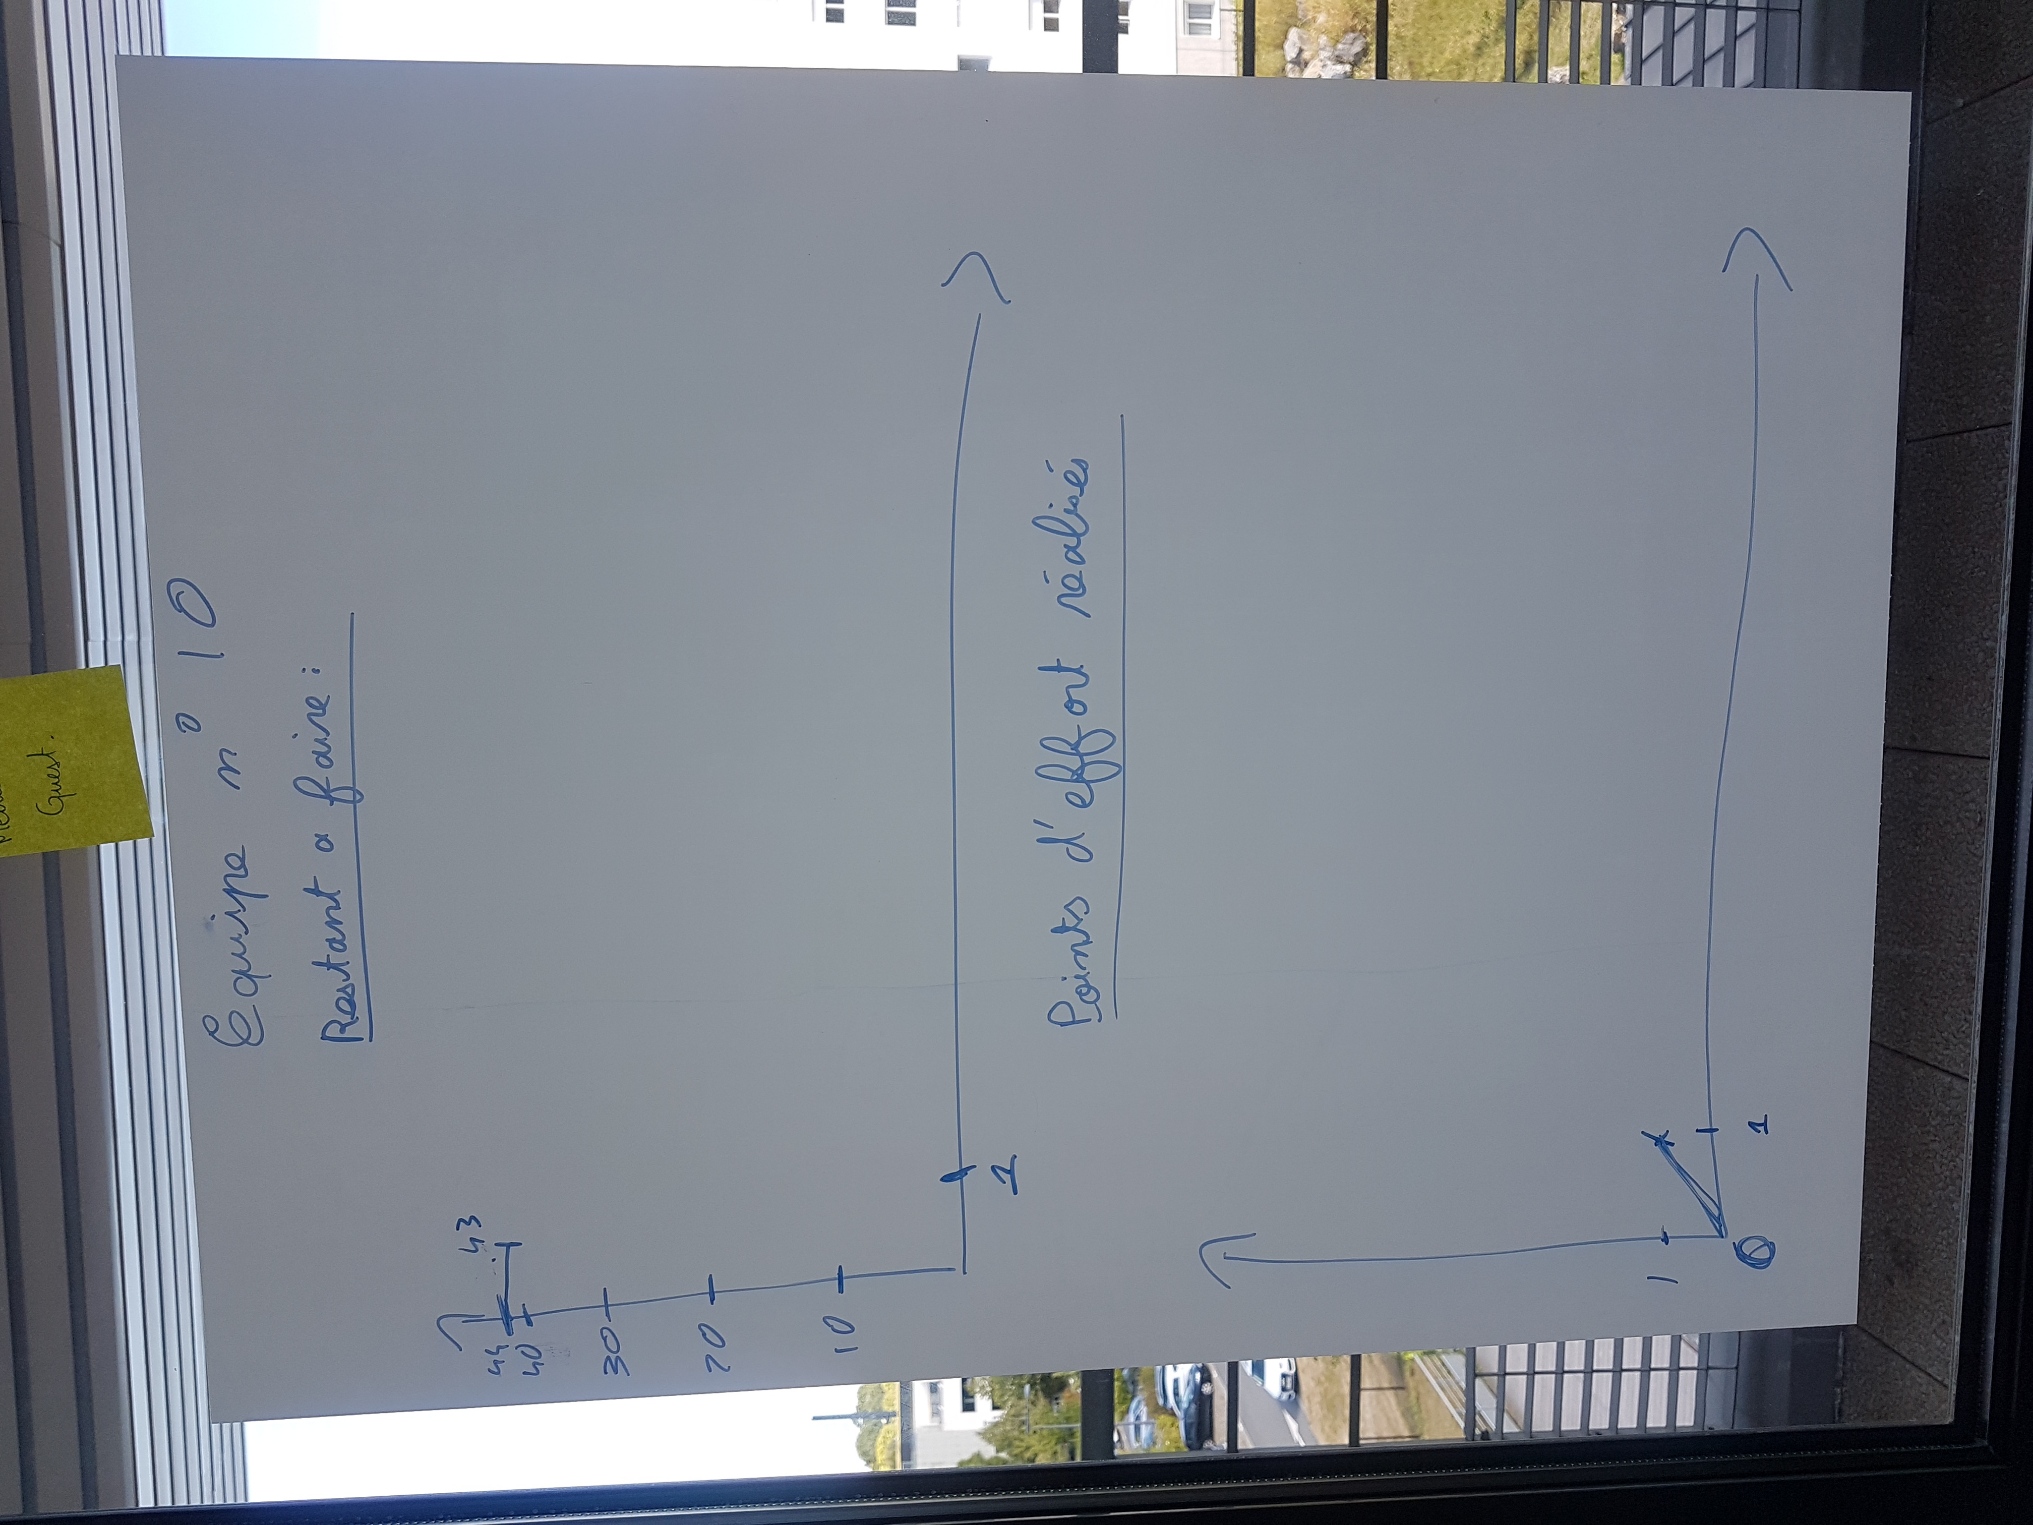 Guest.
Equipe n° 10
Restant a faire :
43
44
40
30
20
10
1
Points d'effort réalisés
1
0
1